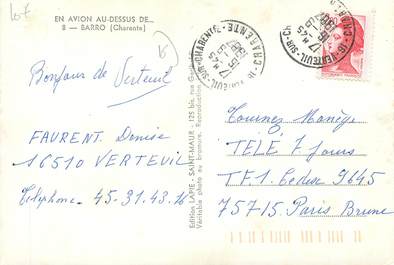 EN AVION AU-DESSUS DE...
8 — BARRO (Charente)
Bonjour de Verteuil
FAURENT. Denise
16510 VERTEUIL
Téléphone. 45-31.43.16
Edition LAPIE - SAINT-MAUR - 125 bis, rue
Véritable photo au bromure. Reproduction
16 VERTEUIL-SUR-CHARENTE
17 H 45
1987
16 VERTEUIL-SUR-CH
17 H 45
Tournez Manège
TELÉ 7 Jours
TF.1. Cedex 9645
75715. Paris Brune